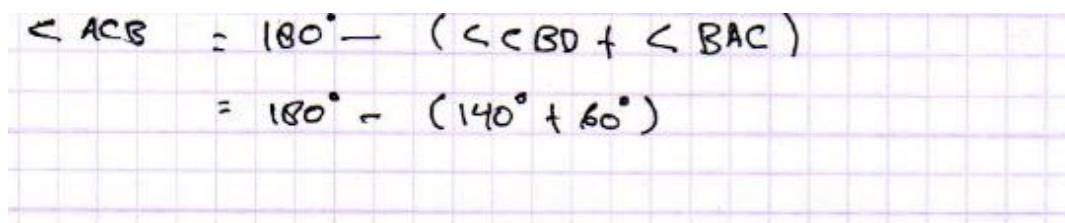 < ACB = 180° - (< CBD + < BAC)
= 180° - (140° + 60°)